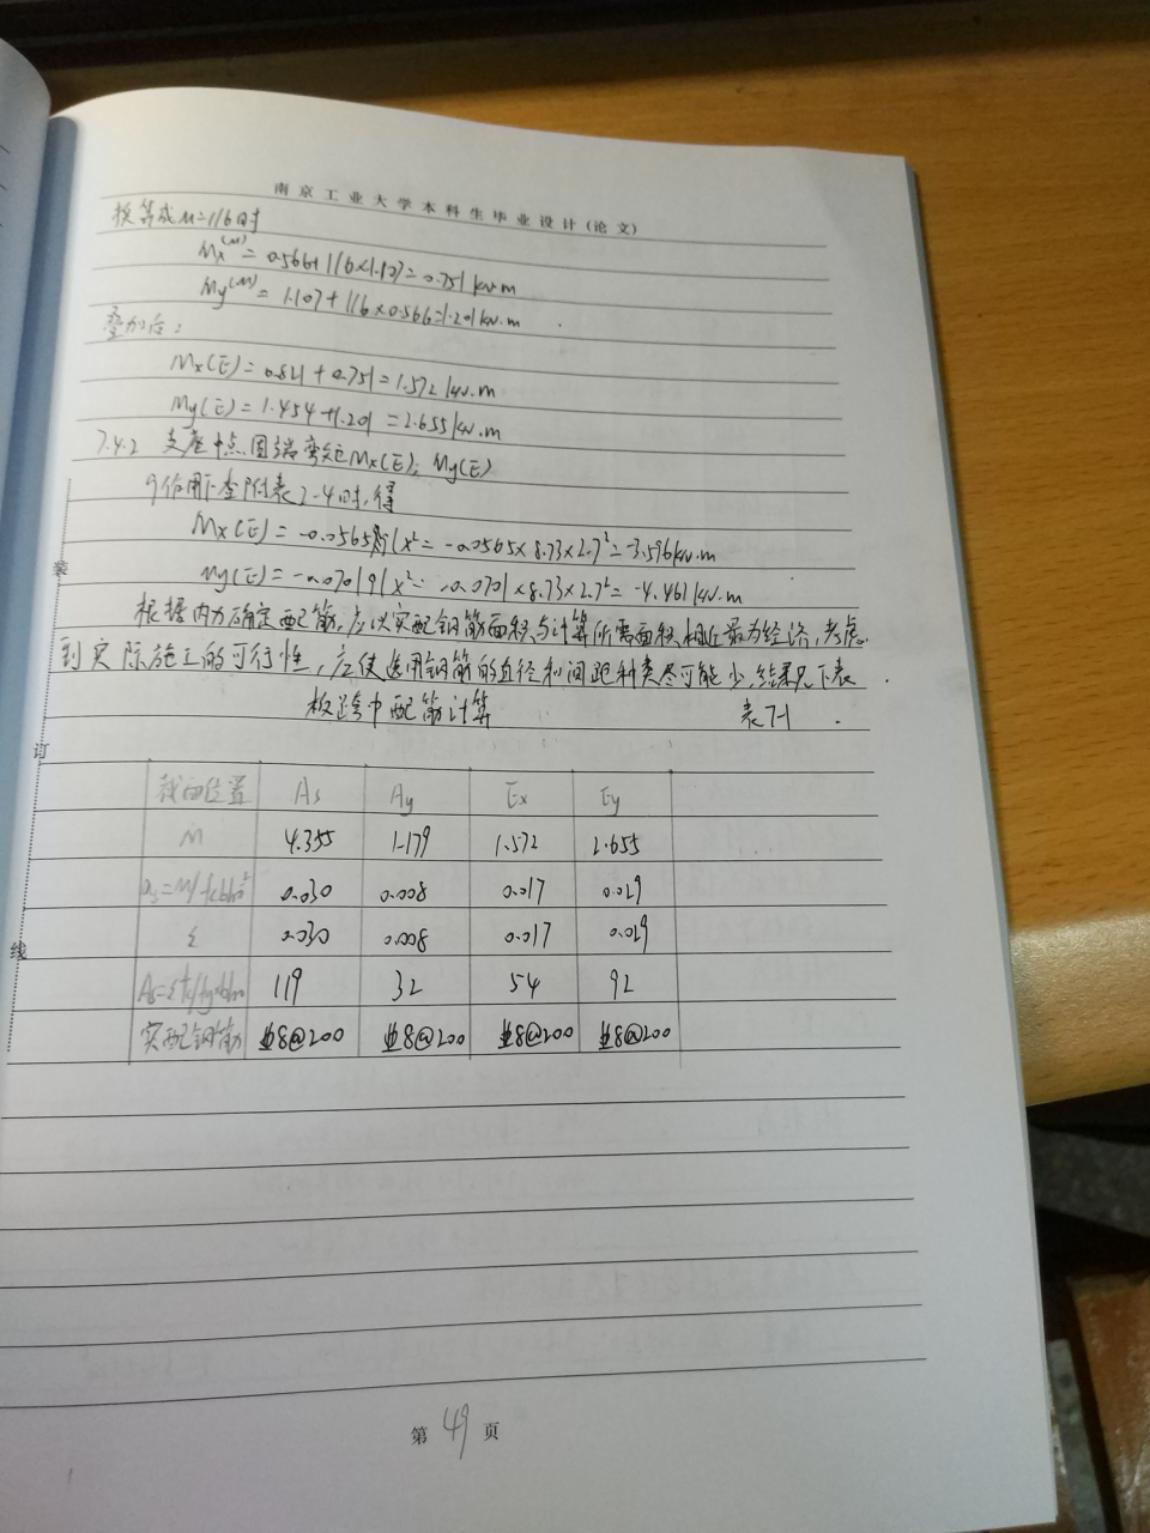 南京工业大学本科生毕业设计(论文)
换算成μ=1/6时
Mx(μ)=0.566+1/6×1.107=0.751kN·m
My(μ)=1.107+1/6×0.566=1.201kN·m
叠加后:
Mx(E)=0.821+0.751=1.572kN·m
My(E)=1.454+1.201=2.655kN·m
7.4.2 支座中点固端弯矩Mx(E),My(E)
q作用下查附表2-4时,得
Mx(E)=-0.0565qlx²=-0.0565×8.73×2.7²=-3.596kN·m
My(E)=-0.0701qlx²=-0.0701×8.73×2.7²=-4.461kN·m
根据内力确定配筋,应以实配钢筋面积与计算所需面积相近最为经济,考虑
到实际施工的可行性,应使选用钢筋的直径和间距种类尽可能少,结果见下表
板跨中配筋计算 表7-1
截面位置 As Ay Ex Ey
M 4.355 1.179 1.572 2.655
αs=M/fcbh₀² 0.030 0.008 0.017 0.029
ξ 0.030 0.008 0.017 0.029
As=ξfc/fy×bh₀ 119 32 54 92
实配钢筋 8@200 8@200 8@200 8@200
装
订
线
第 49 页